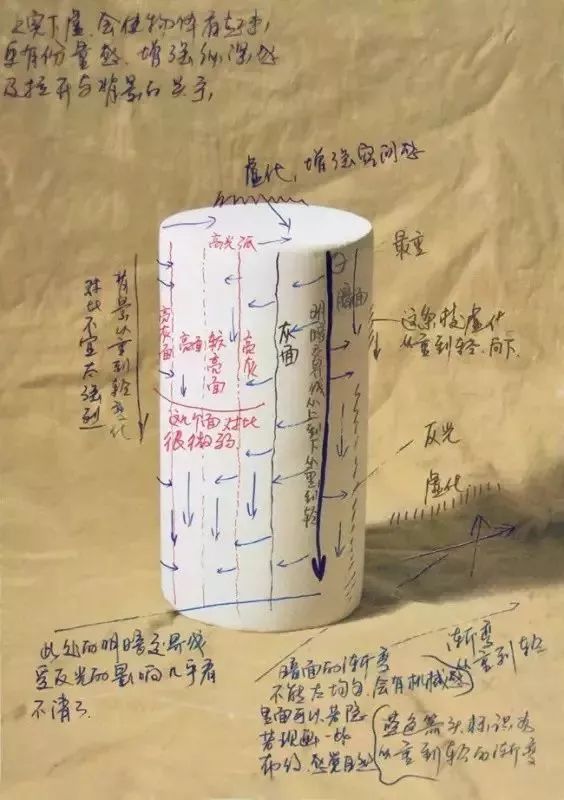 上实下虚.会使物体有起来,
更有份量感.增强纵深感
及拉开与背景的关系,
虚化,增强空间感
高光弧
最重
背景从重到轻变化
对比不宜太强烈
高灰面
高面
较亮面
亮灰
灰面
明暗交界线从上到下从重到轻
暗面
这条线虚化
从重到轻.向下
这几个面对比
很微弱.
反光
虚化.
此处的明暗交界线
受反光的影响几乎看
不清了.
渐变
从重到轻
暗面的渐变
不能太均匀.会有机械感
里面可以若隐
若现画一些
布纹.感觉自然
蓝色箭头标识为
从重到轻的渐变